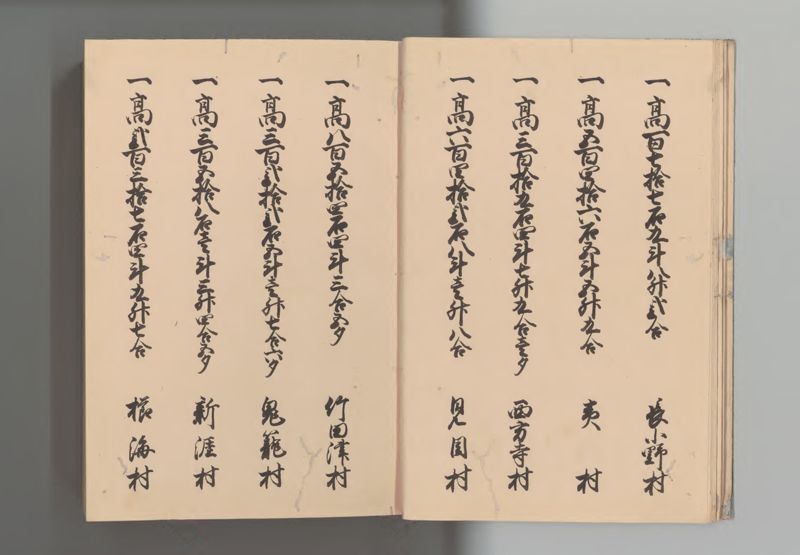 一高百七拾七石九斗八升弐合 長小野村
一高五百四拾六石五斗五升九合 夷村
一高三百拾五石四斗七升九合壱夕 西方寺村
一高六百四拾弐石八斗壱升八合 見目村
一高八百五拾四石四斗三合五夕 竹田津村
一高三百弐拾弐石五斗壱升七合六夕 鬼籠村
一高三百五拾八石壱斗三升四合五夕 新涯村
一高弐百三拾七石四斗九升七合 櫛海村